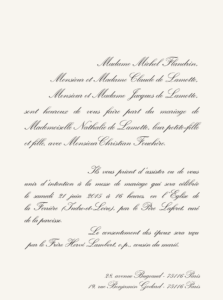 Madame Michel Flandrin,
Monsieur et Madame Claude de Lamotte,
Monsieur et Madame Jacques de Lamotte,
sont heureux de vous faire part du mariage de
Mademoiselle Nathalie de Lamotte, leur petite-fille
et fille, avec Monsieur Christian
Ils vous prient d'assister ou de vous
unir d'intention à la messe de mariage qui sera célébrée
le samedi 21 juin 2013 à 16 heures, en l'Église de
la Ferrière (Indre-et-Loire), par le Père
de la paroisse.
Le consentement des époux sera reçu
par le Frère Hervé Lambert, o.p., cousin du marié.
28, avenue Bugeaud - 75116 Paris
14, rue Benjamin Godard - 75116 Paris